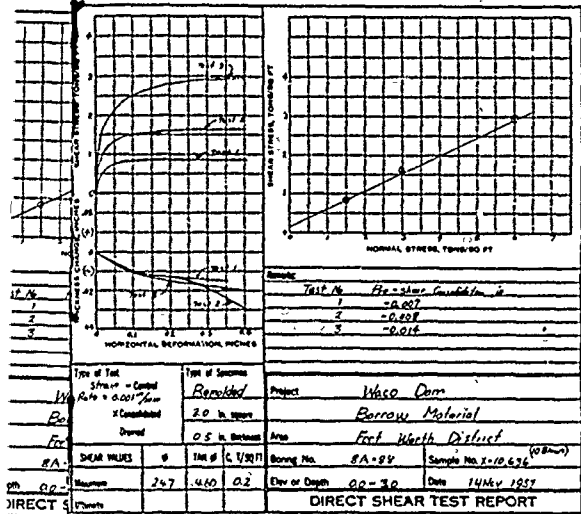 SHEAR STRESS, TONS/SQ FT
3
2
1
0
(+)
0
(-)
THICKNESS CHANGE, INCHES
Test 2
Test 1
Test 1
Test 2
0 0.2
HORIZONTAL DEFORMATION, INCHES
SHEAR STRESS, TONS/SQ FT
4
3
2
1
0
0 1 2 3 4 5 6 7
NORMAL STRESS, TONS/SQ FT
Remarks
Test No Pre-shear Consolidation in
1 -0.007
2 -0.008
3 -0.014
Test No
1
2
3
Type of Test
Strain - Control
Rate = 0.001"/min
X Consolidated
Drained
Type of Specimen
Remolded
2.0 in. square
0.5 in. thickness
SHEAR VALUES Ø TAN Ø C, T/SQ FT
Maximum 24.7 .460 0.2
Ultimate
Project Waco Dam
Borrow Material
Area Fort Worth District
Boring No. 8A-98 Sample No. X-10,696
Elev or Depth 0.0-3.0 Date 14 May 1957
DIRECT SHEAR TEST REPORT
Bo
For
8A-
pth 0.0-
DIRECT S